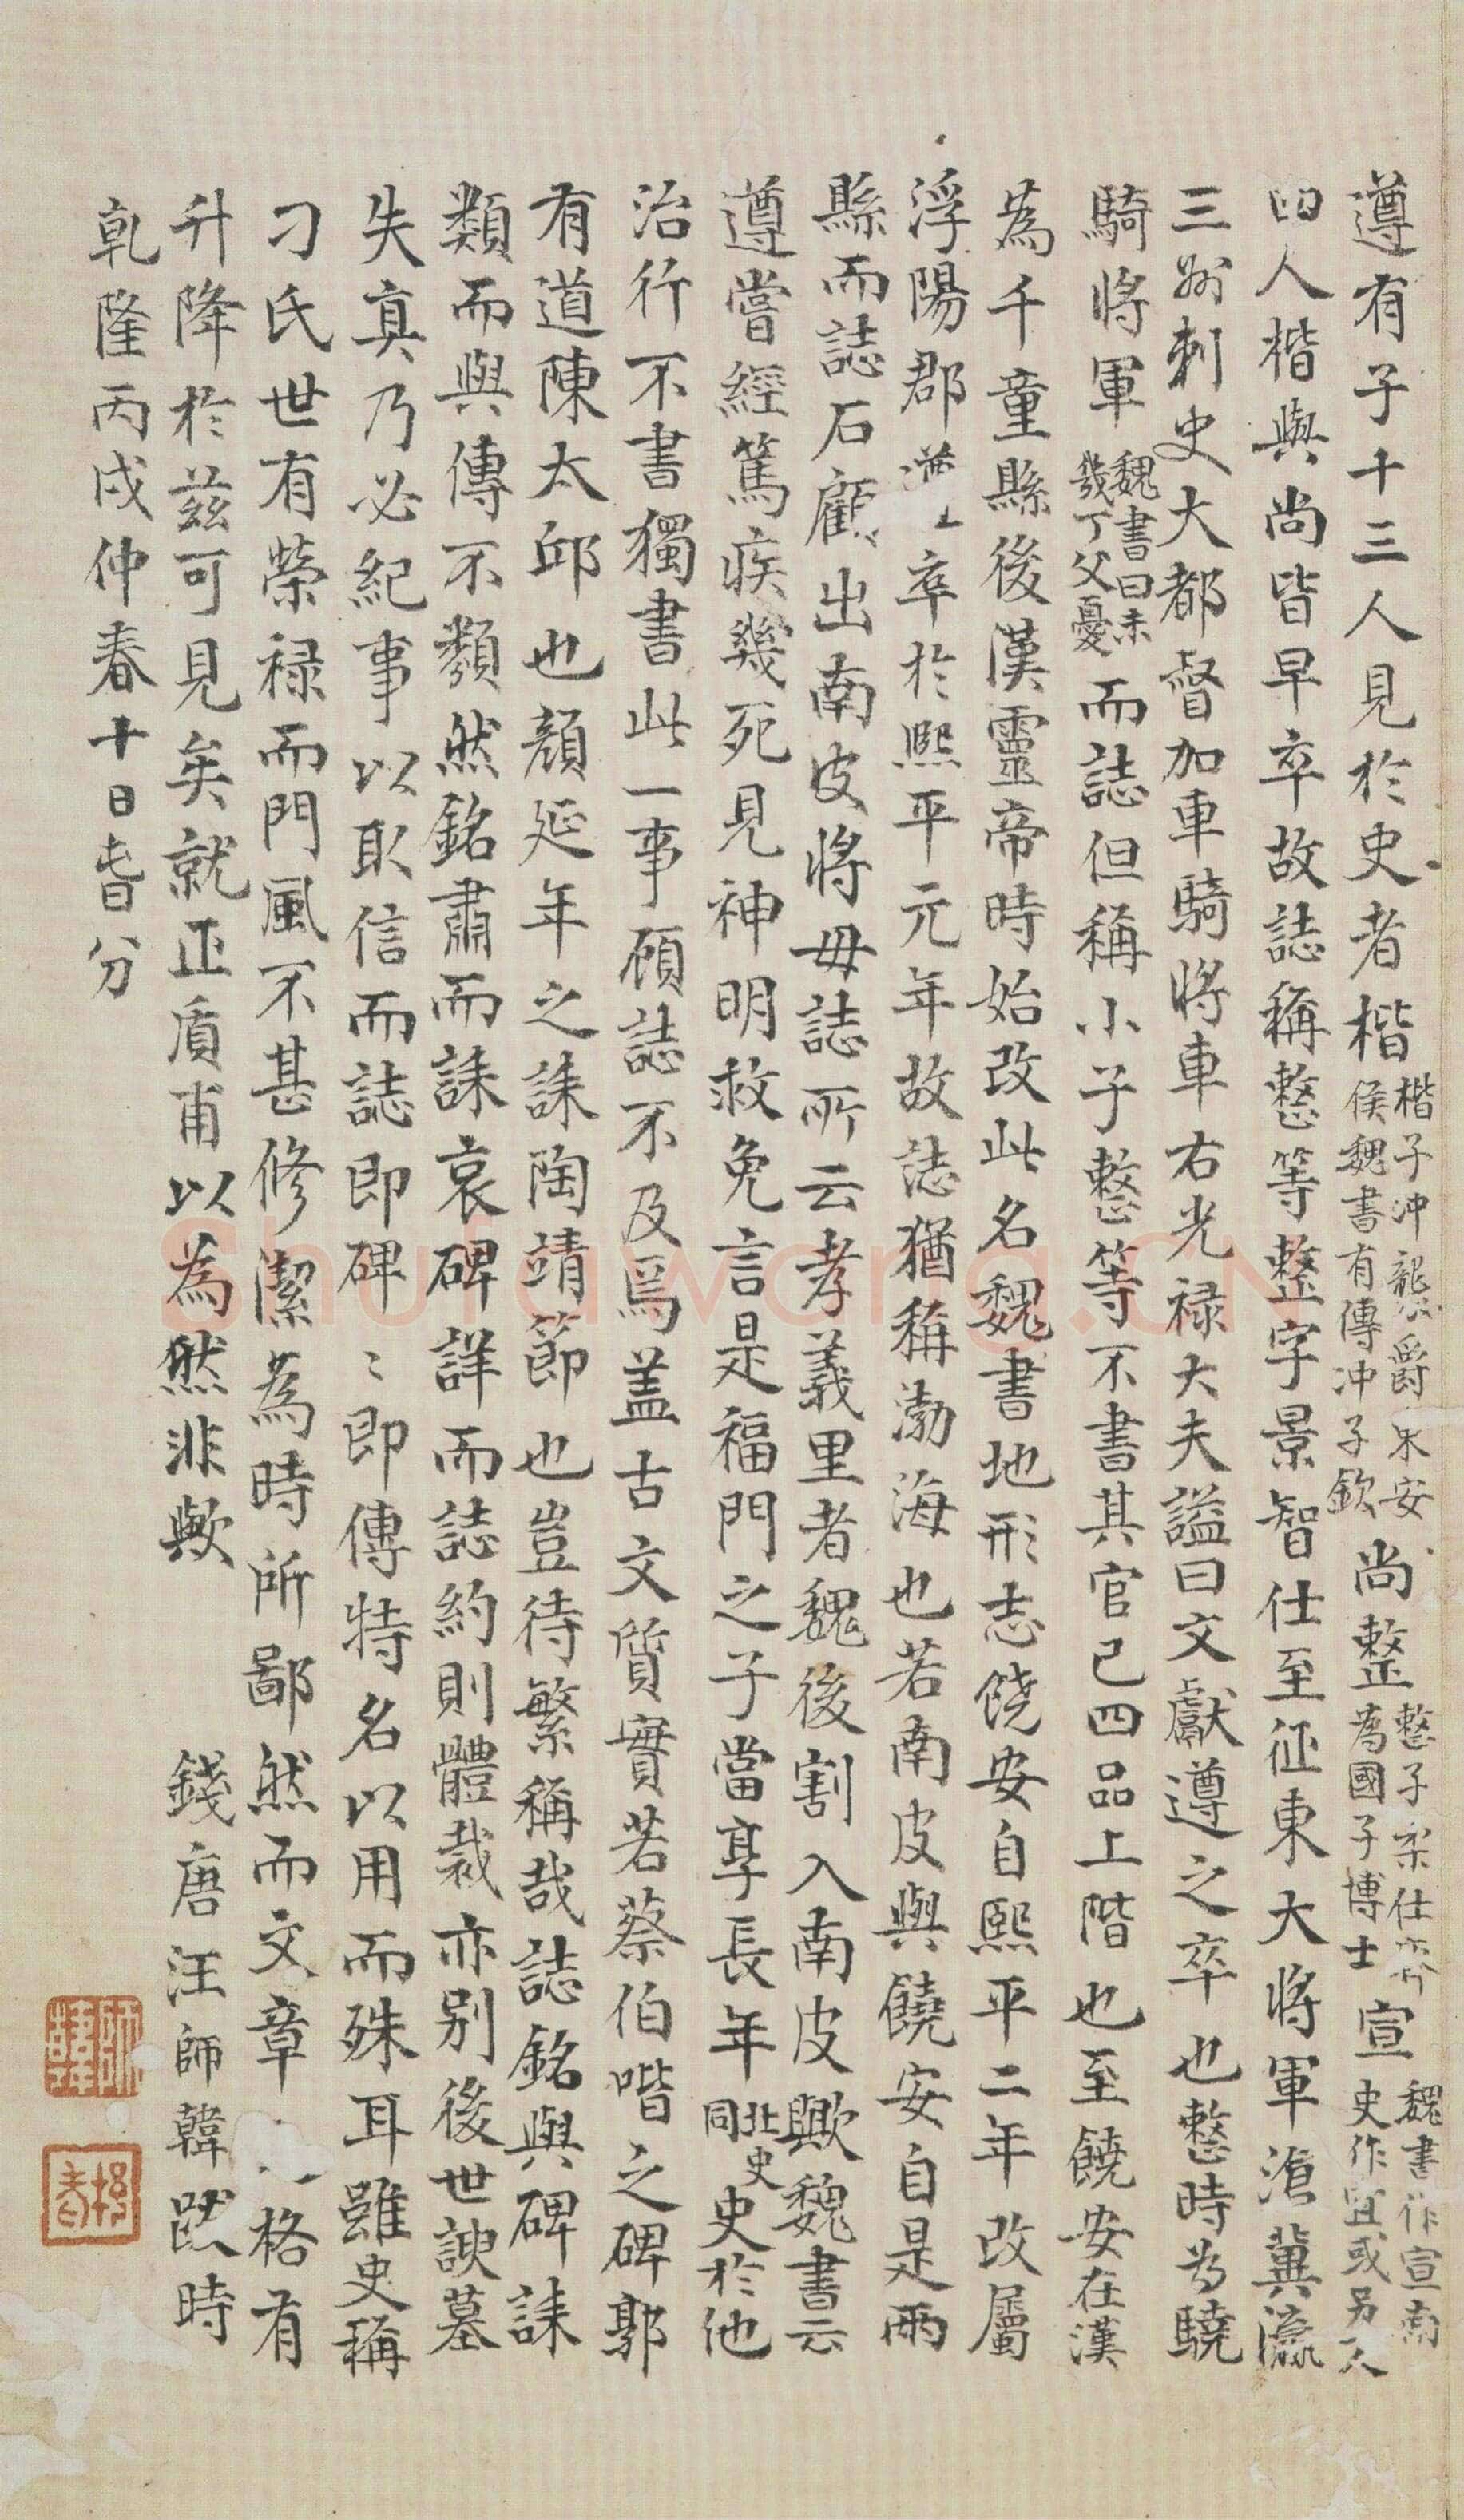 遵有子十三人見於史者楷楷子冲襲爵朱安侯魏書有傳冲子欽尚整整子柔仕齊為國子博士宣魏書作宣南史作宜或另一人
四人楷與尚皆早卒故誌稱整等整字景智仕至征東大將軍滄冀瀛
三州刺史大都督加車騎將車右光禄大夫謚曰文獻遵之卒也整時為驍
騎將軍魏書曰未幾丁父憂而誌但稱小子整等不書其官已四品上階也至饒安在漢
為千童縣後漢靈帝時始改此名魏書地形志饒安自熙平二年改屬
浮陽郡遵之卒於熙平元年故誌猶稱渤海也若南皮與饒安自是兩
縣而誌石顧出南皮將毋誌所云孝義里者魏後割入南皮歟魏書云
遵嘗經篤疾幾死見神明救免言是福門之子當享長年北史同史於他
治行不書獨書此一事顧誌不及焉盖古文質實若蔡伯喈之碑郭
有道陳太邱也顔延年之誄陶靖節也豈待繁稱哉誌銘與碑誄
類而與傳不類然銘肅而誄哀碑詳而誌約則體裁亦别後世諛墓
失真乃必紀事以取信而誌即碑〻即傳特名以用而殊耳雖史稱
刁氏世有榮禄而門風不甚修潔為時所鄙然而文章之格有
升降於兹可見矣就正盾甫以為然非歟 錢唐汪師韓跋時
乾隆丙戌仲春十日昏分